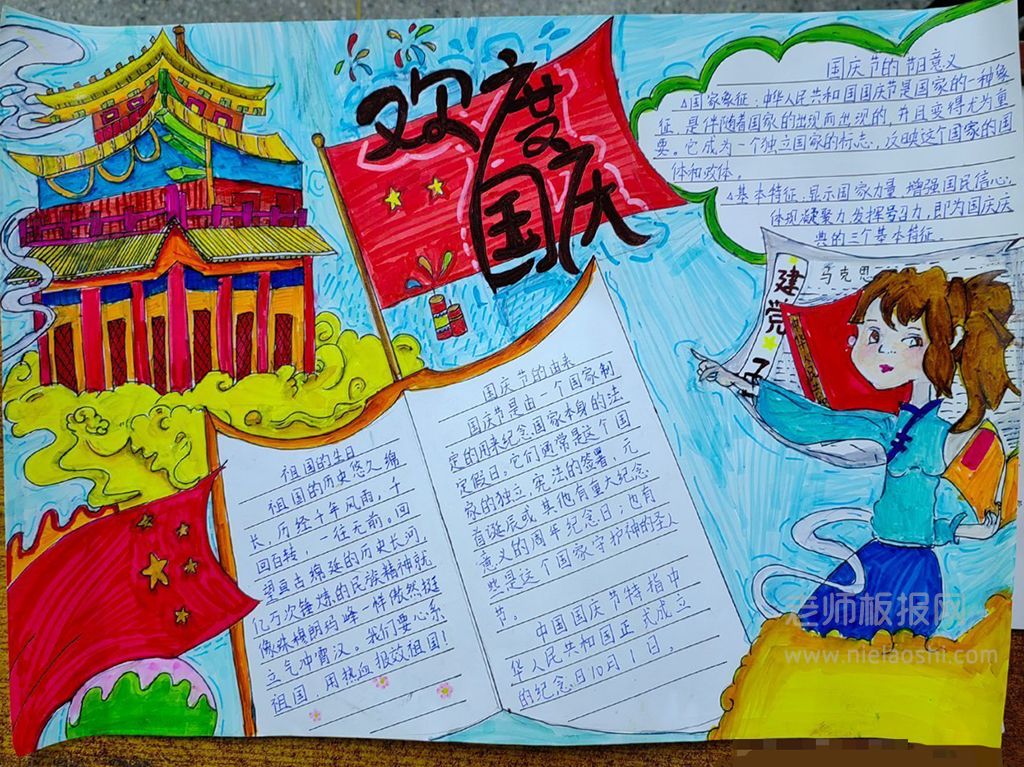 欢度
国庆
国庆节的节日意义
△国家象征:中华人民共和国国庆节是国家的一种象
征,是伴随着国家的出现而出现的,并且变得尤为重
要。它成为一个独立国家的标志,反映这个国家的国
体和政体。
△基本特征,显示国家力量,增强国民信心,
体现凝聚力,发挥号召力,即为国庆庆
典的三个基本特征。
建党
马克思
国庆节的由来
国庆节是由一个国家制
定的用来纪念国家本身的法
定假日。它们通常是这个国
家的独立、宪法的签署、元
首诞辰或其他有重大纪念
意义的周年纪念日;也有
些是这个国家守护神的圣人
节。
中国国庆节特指中
华人民共和国正式成立
的纪念日10月1日。
祖国的生日
祖国的历史悠久绵
长,历经千年风雨,千
回百转,一往无前。回
望亘古绵延的历史长河,
亿万次锤炼的民族精神就
像珠穆朗玛峰一样傲然挺
立气冲霄汉。我们要心系
祖国,用热血报效祖国!
老师板报网
www.nielaoshi.com